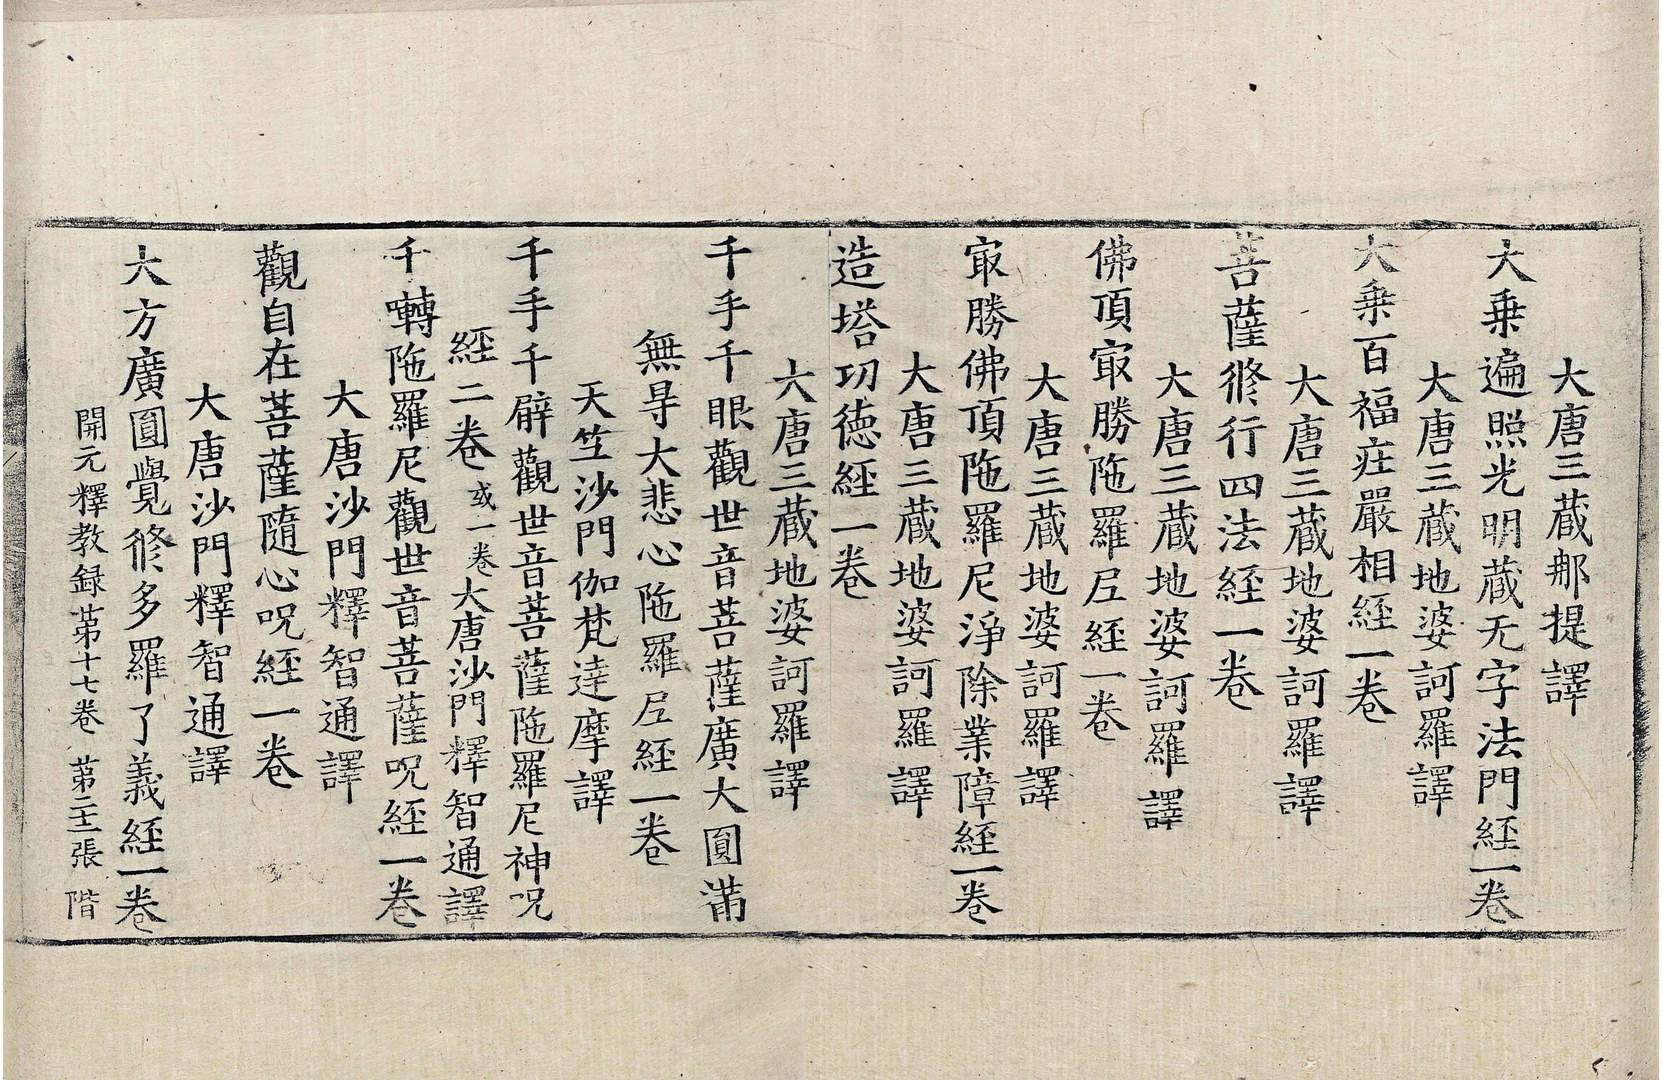 大唐三藏那提譯
大乗遍照光明藏无字法門經一卷
大唐三藏地婆訶羅譯
大乗百福莊嚴相經一卷
大唐三藏地婆訶羅譯
菩薩修行四法經一卷
大唐三藏地婆訶羅譯
佛頂㝡勝陁羅尼經一卷
大唐三藏地婆訶羅譯
㝡勝佛頂陁羅尼淨除業障經一卷
大唐三藏地婆訶羅譯
造塔功德經一卷
大唐三藏地婆訶羅譯
千手千眼觀世音菩薩廣大圓滿
無㝵大悲心陁羅尼經一卷
天竺沙門伽梵達摩譯
千手千臂觀世音菩薩陁羅尼神呪
經二卷或一卷大唐沙門釋智通譯
千囀陁羅尼觀世音菩薩呪經一卷
大唐沙門釋智通譯
觀自在菩薩隨心呪經一卷
大唐沙門釋智通譯
大方廣圓覺修多羅了義經一卷
開元釋教録苐十七卷 苐二十二張 階